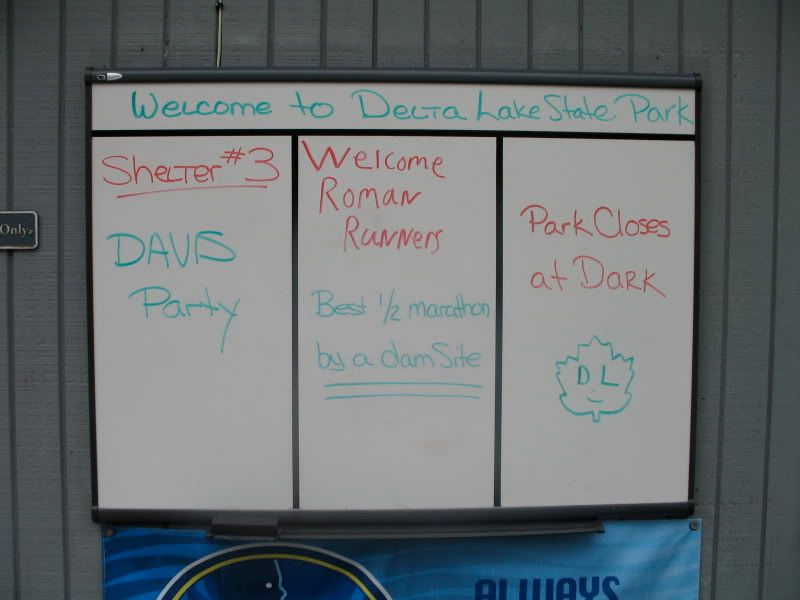 Welcome to Delta Lake State Park
Shelter #3
DAVIS
Party
Welcome
Roman
Runners
Best 1/2 marathon
by a dam Site
Park Closes
at Dark
D L
Only
ALWAYS